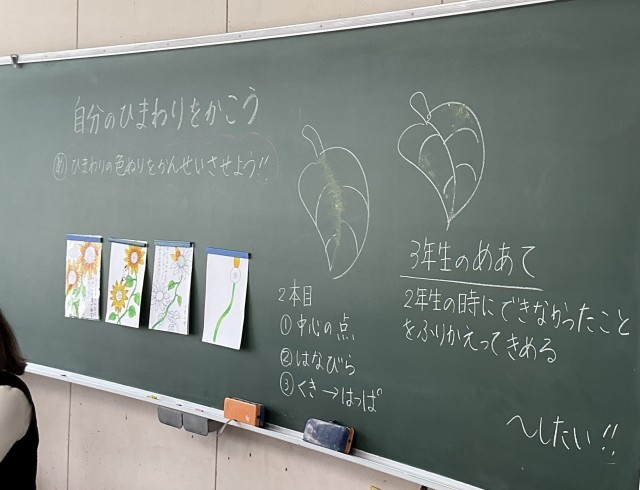 自分のひまわりをかこう
㋱ ひまわりの色ぬりをかんせいさせよう!!
2本目
① 中心の点
② はなびら
③ くき→はっぱ
3年生のめあて
2年生の時にできなかったこと
をふりかえってきめる
〜したい!!